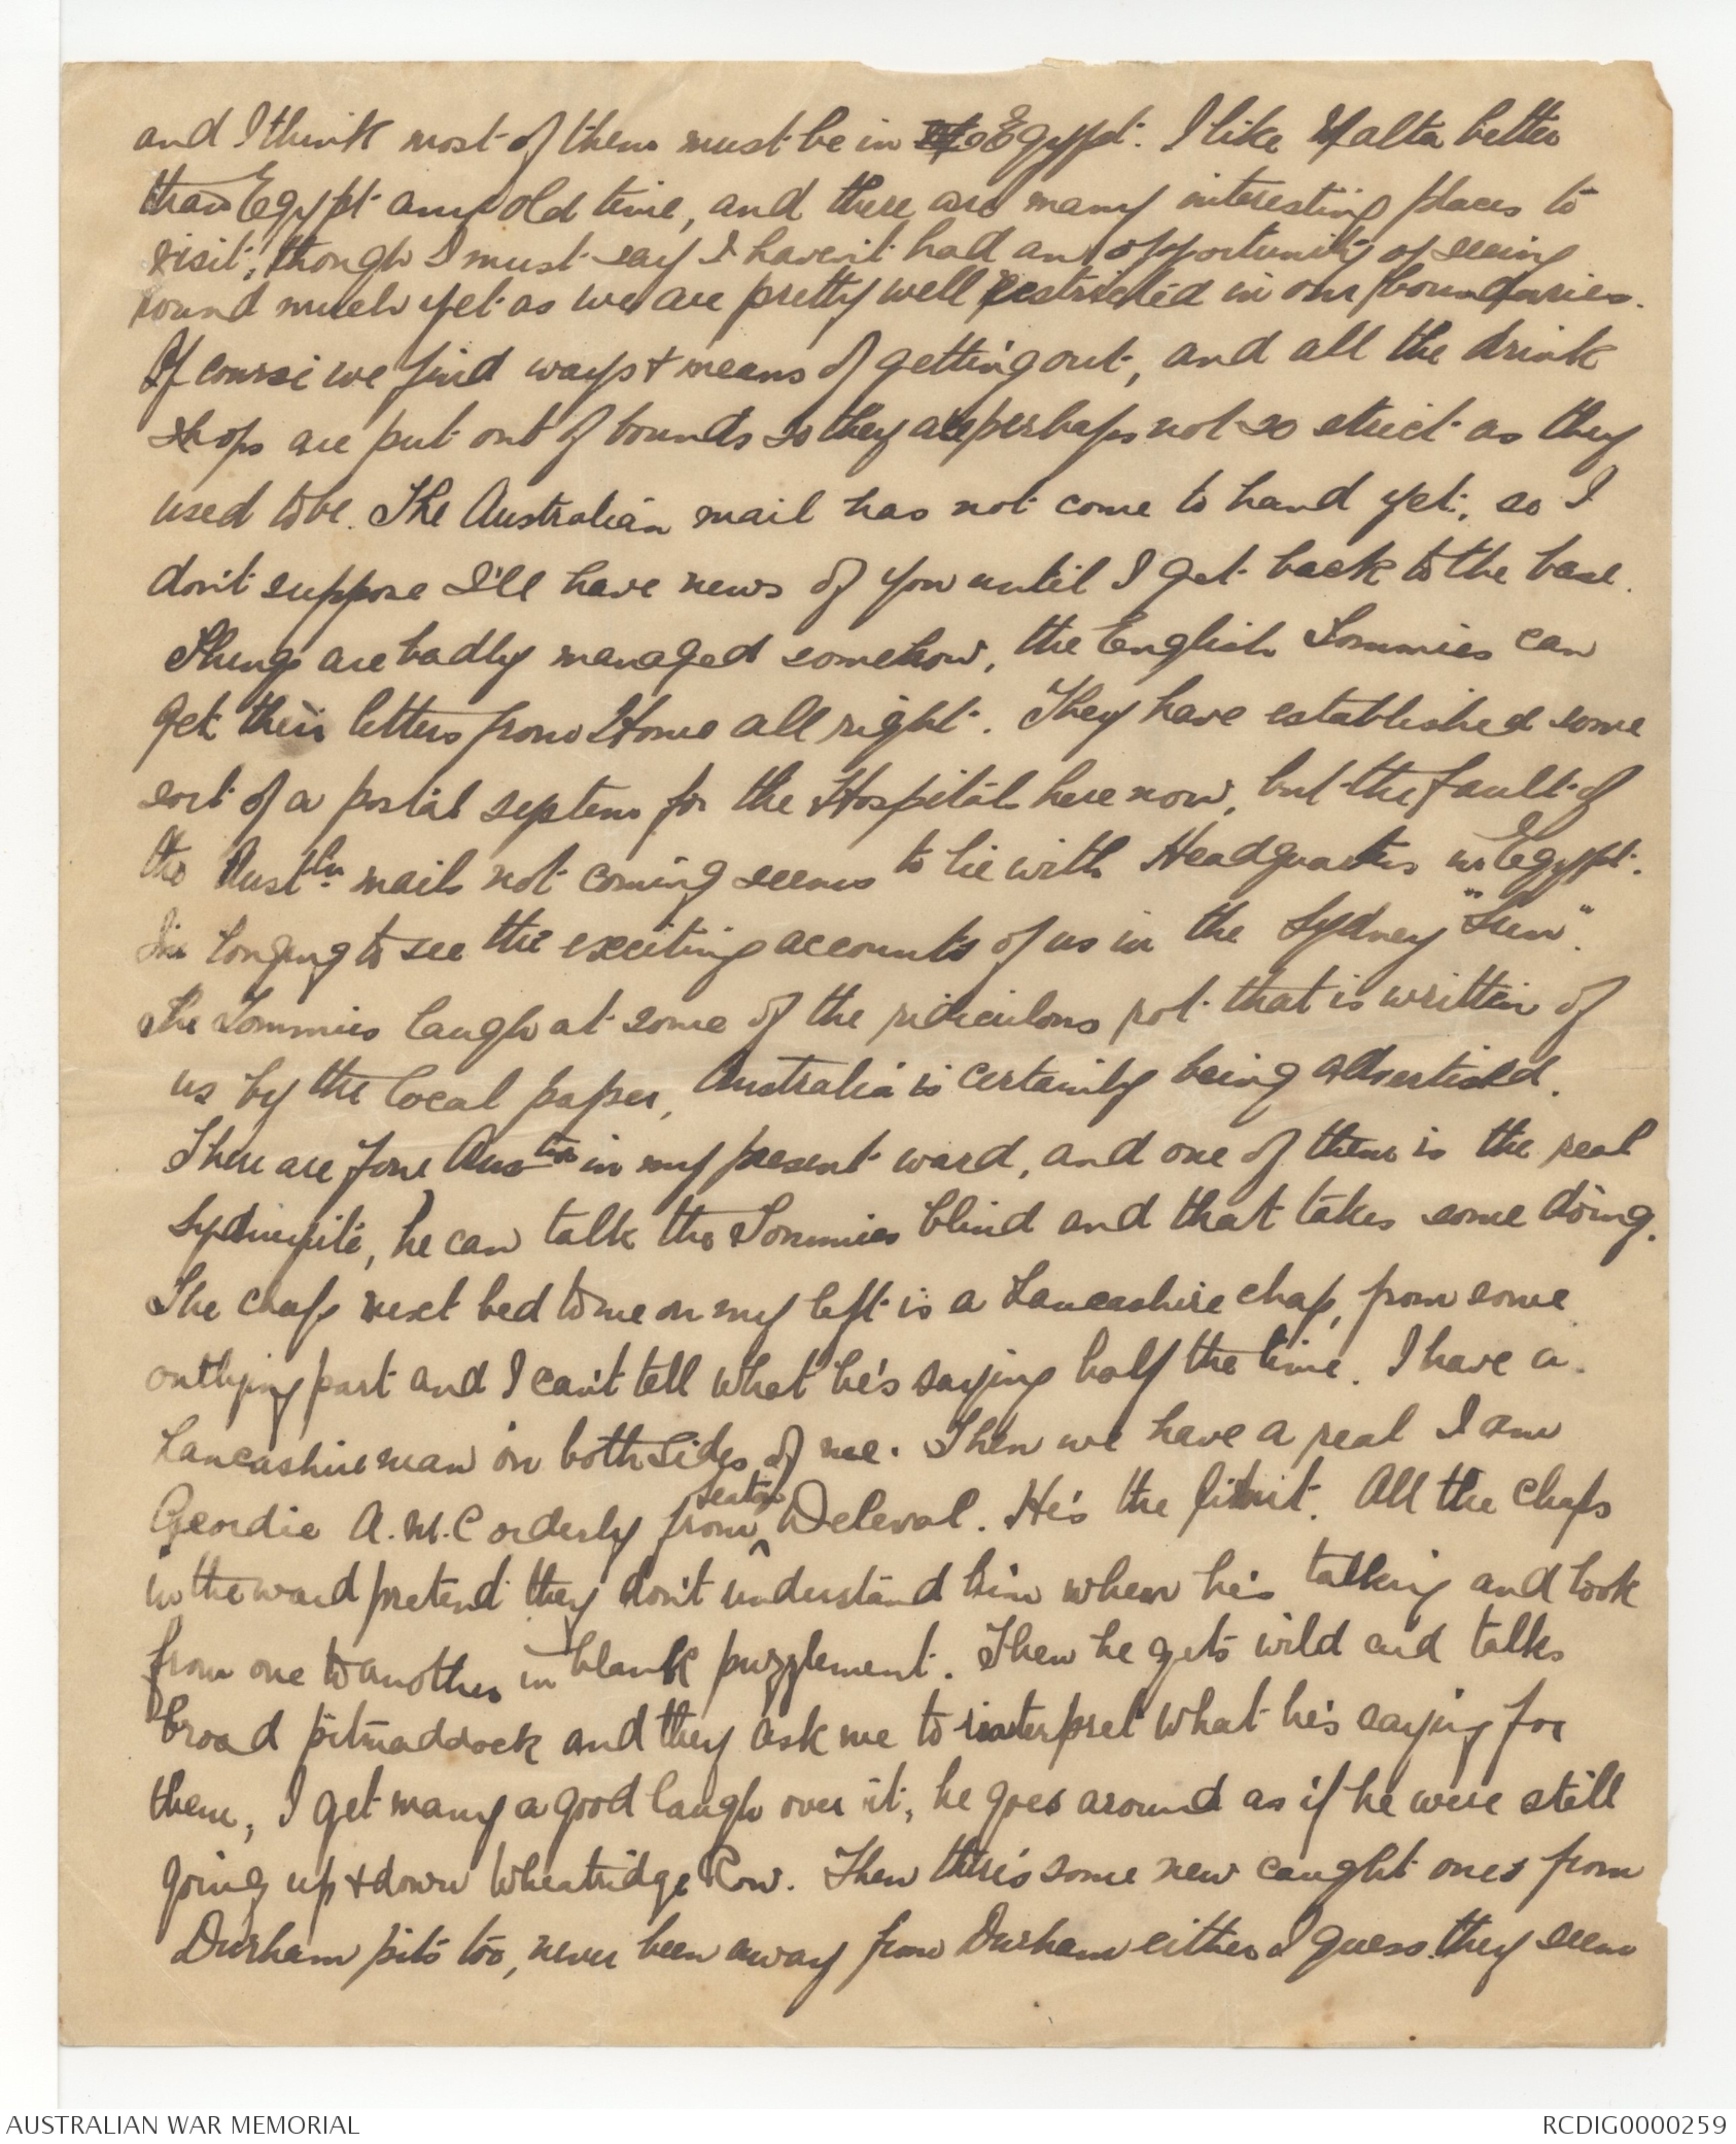 and I think most of them must be in Egypt. I like Malta better
than Egypt any old time, and there are many interesting places to
visit, though I must say I haven't had an opportunity of seeing
round much yet as we are pretty well restricted in our boundaries.
Of course we find ways & means of getting out, and all the drink
shops are put out of bounds so they are perhaps not so strict as they
used to be. The Australian mail has not come to hand yet, so I
don't suppose I'll have news of you until I get back to the base.
Things are badly managed somehow, the English Tommies can
get their letters from Home all right. They have established some
sort of a postal system for the Hospitals here now, but the fault of
the Austln. mails not coming seems to lie with Headquarters in Egypt.
I'm longing to see the exciting accounts of us in the Sydney "Sun".
The Tommies laugh at some of the ridiculous rot that is written of
us by the local paper, Australia is certainly being advertised.
There are four Austns in my present ward, and one of them is the real
Sydneyite, he can talk the Tommies blind and that takes some doing.
The chap next bed to me on my left is a Lancashire chap, from some
outlying part and I can't tell what he's saying half the time. I have a
Lancashire man on both sides of me. Then we have a real I am
Geordie A.M.C orderly from ^Seaton Deleval. He's the limit. All the chaps
in the ward pretend they don't understand him when he's talking and look
from one to another in blank puzzlement. Then he gets wild and talks
broad pitmaddock and they ask me to interpret what he's saying for
them, I get many a good laugh over it, he goes around as if he were still
going up & down Wheatridge Row. Then there's some new caught ones from
Durham pits too, never been away from Durham either I guess. they seem
AUSTRALIAN WAR MEMORIAL
RCDIG0000259